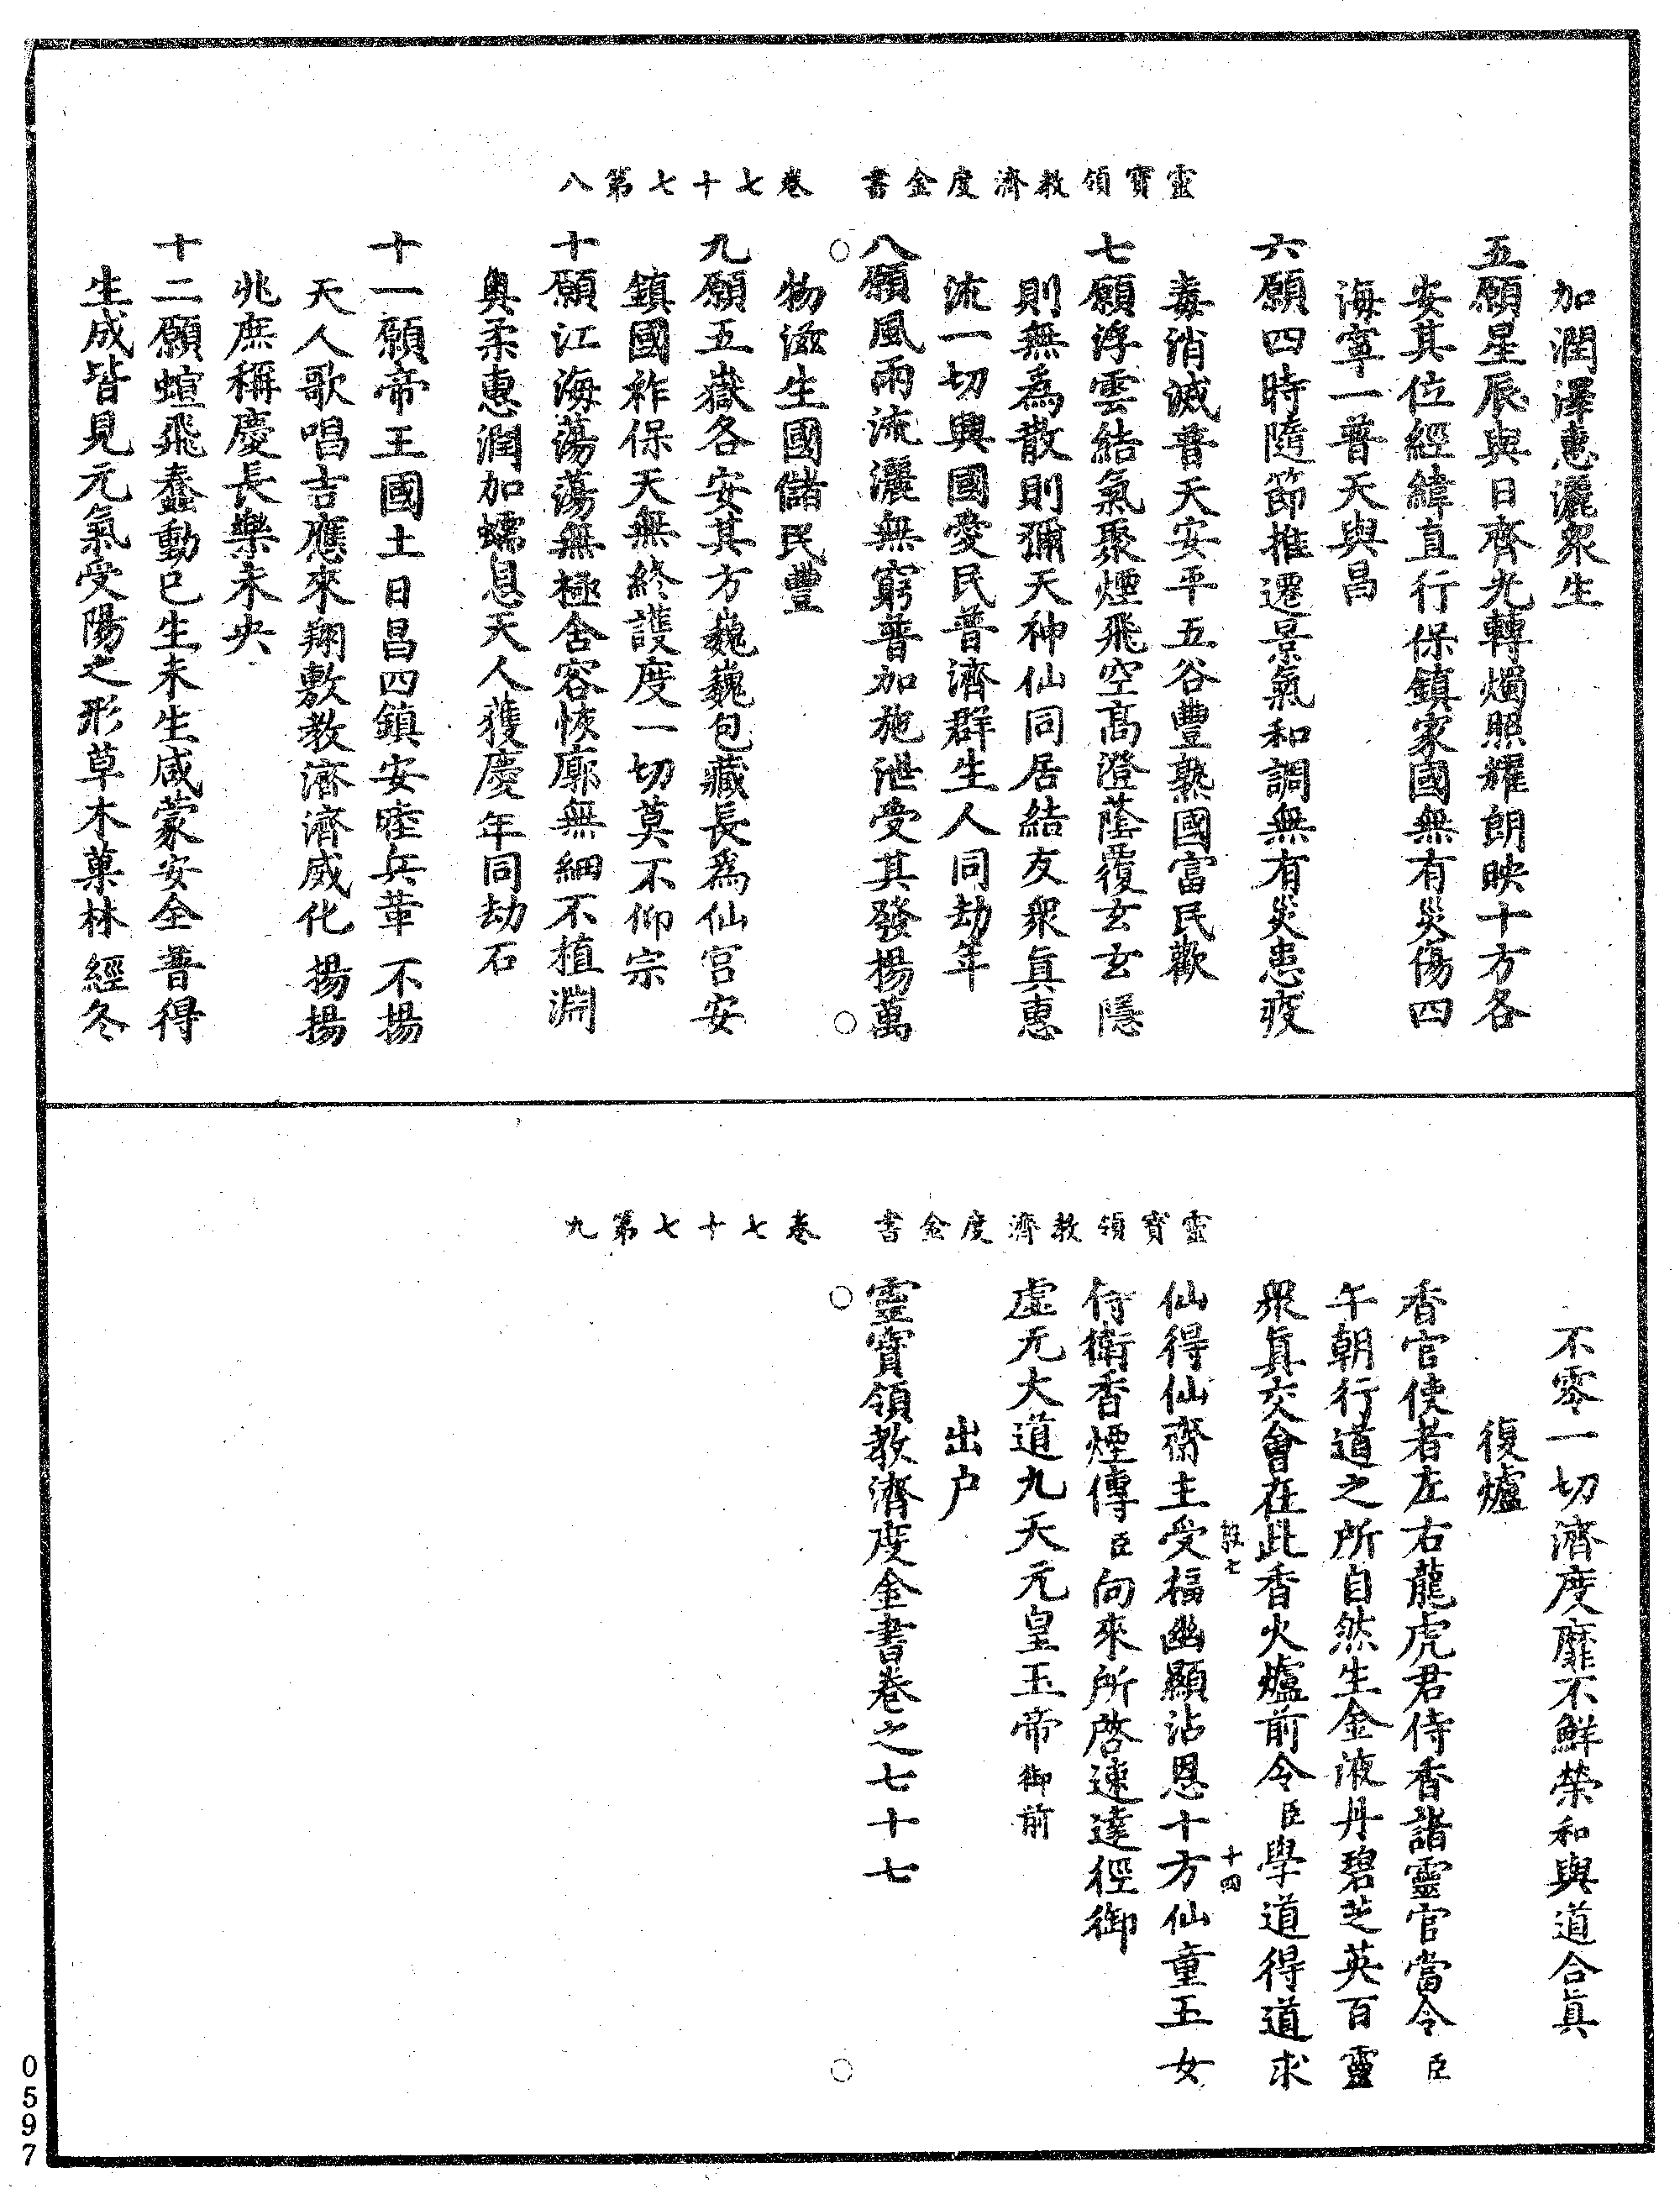 靈寶領教濟度金書　卷七十七第八
加潤澤惠灑衆生
五願星辰與日齊光轉燭照耀朗映十方各
安其位經緯直行保鎮家國無有災傷四
海寧一普天與昌
六願四時隨節推遷景氣和調無有災患疫
毒消滅普天安平五谷豐熟國富民歡
七願浮雲結氣聚煙飛空高澄蔭覆玄玄隱
則無爲散則彌天神仙同居結友衆眞惠
流一切興國愛民普濟群生人同劫年
八願風雨流灑無窮普加施泄受其發揚萬
物滋生國儲民豐
九願五嶽各安其方巍巍包藏長爲仙宮安
鎮國祚保天無終護度一切莫不仰宗
十願江海蕩蕩無極含容恢廓無細不植淵
奧柔惠潤加蠕息天人獲慶年同劫石
十一願帝王國土日昌四鎮安睦兵革不揚
天人歌唱吉應來翔敷教濟濟威化揚揚
兆庶稱慶長樂未央
十二願蝖飛蠢動已生未生咸蒙安全普得
生成皆見元氣受陽之形草木菓林經冬
靈寶領教濟度金書　卷七十七第九
不零一切濟度靡不鮮榮和與道合眞
復爐
香官使者左右龍虎君侍香諸靈官當令臣
午朝行道之所自然生金液丹碧芝英百靈
衆眞交會在此香火爐前令臣學道得道求
十四
仙得仙齋主受福幽顯沾恩十方仙童玉女
侍衛香煙傳臣向來所啓速達徑御
虛无大道九天元皇玉帝御前
出户
靈寶領教濟度金書卷之七十七
0597